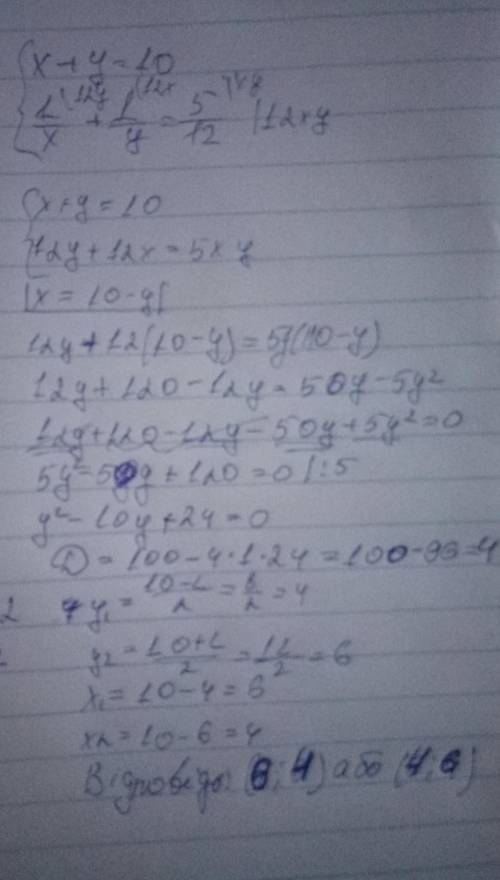 {x+y=10
1/x |12y + 1/y |12x = 5/12 |xy |12xy
{x+y=10
12y+12x=5xy
|x=10-y|
12y+12(10-y)=5y(10-y)
12y+120-12y=50y-5y²
12y+120-12y-50y+5y²=0
5y²-50y+120=0 |:5
y²-10y+24=0
D=100-4·1·24=100-96=4
y₁=(10-2)/2=8/2=4
y₂=(10+2)/2=12/2=6
x₁=10-4=6
x₂=10-6=4
Відповідь: (6;4) або (4;6)